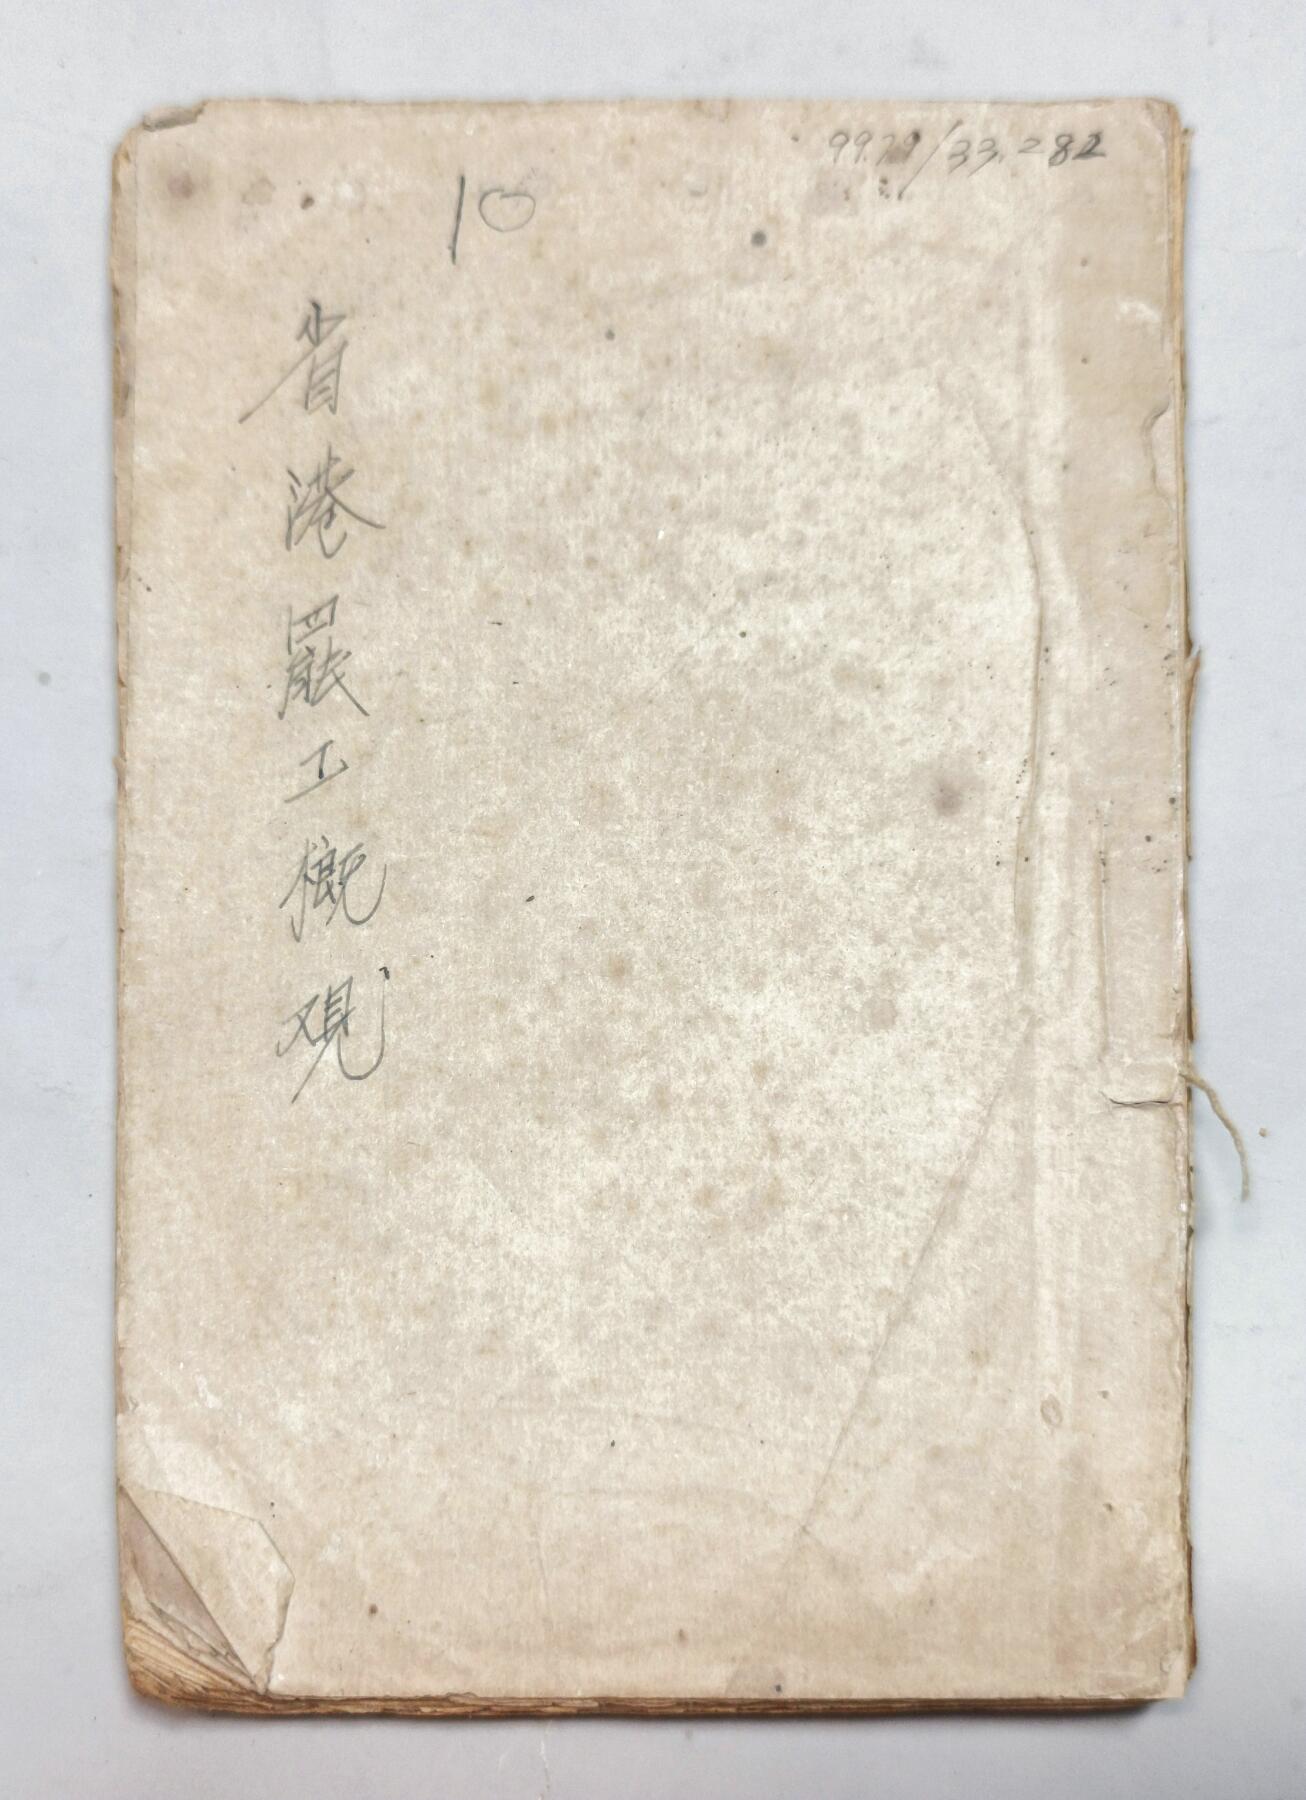 99.79/33.282
10
省港罷工概观